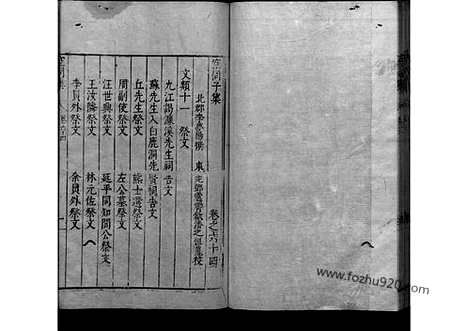 空同子集 卷之六十四
北郡李夢陽撰 東
文類十一 祭文
九江謁濂溪先生祠告文
蘇先生入白鹿洞先賢祠告文
丘先生祭文 熊士選祭文
周副使祭文 左公墓祭文
汪世興祭文 延平同知閻公祭文
王汝隣祭文 林元佐祭文
李員外祭文 余員外祭文
www.fozhu920.com